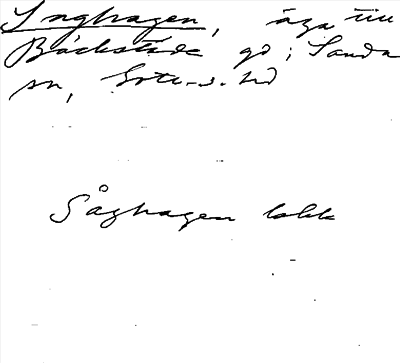 Ynghagen, äga till
Bäckstäde gd i Sanda
sn, Gotl. s. hd
Såghagen lokk